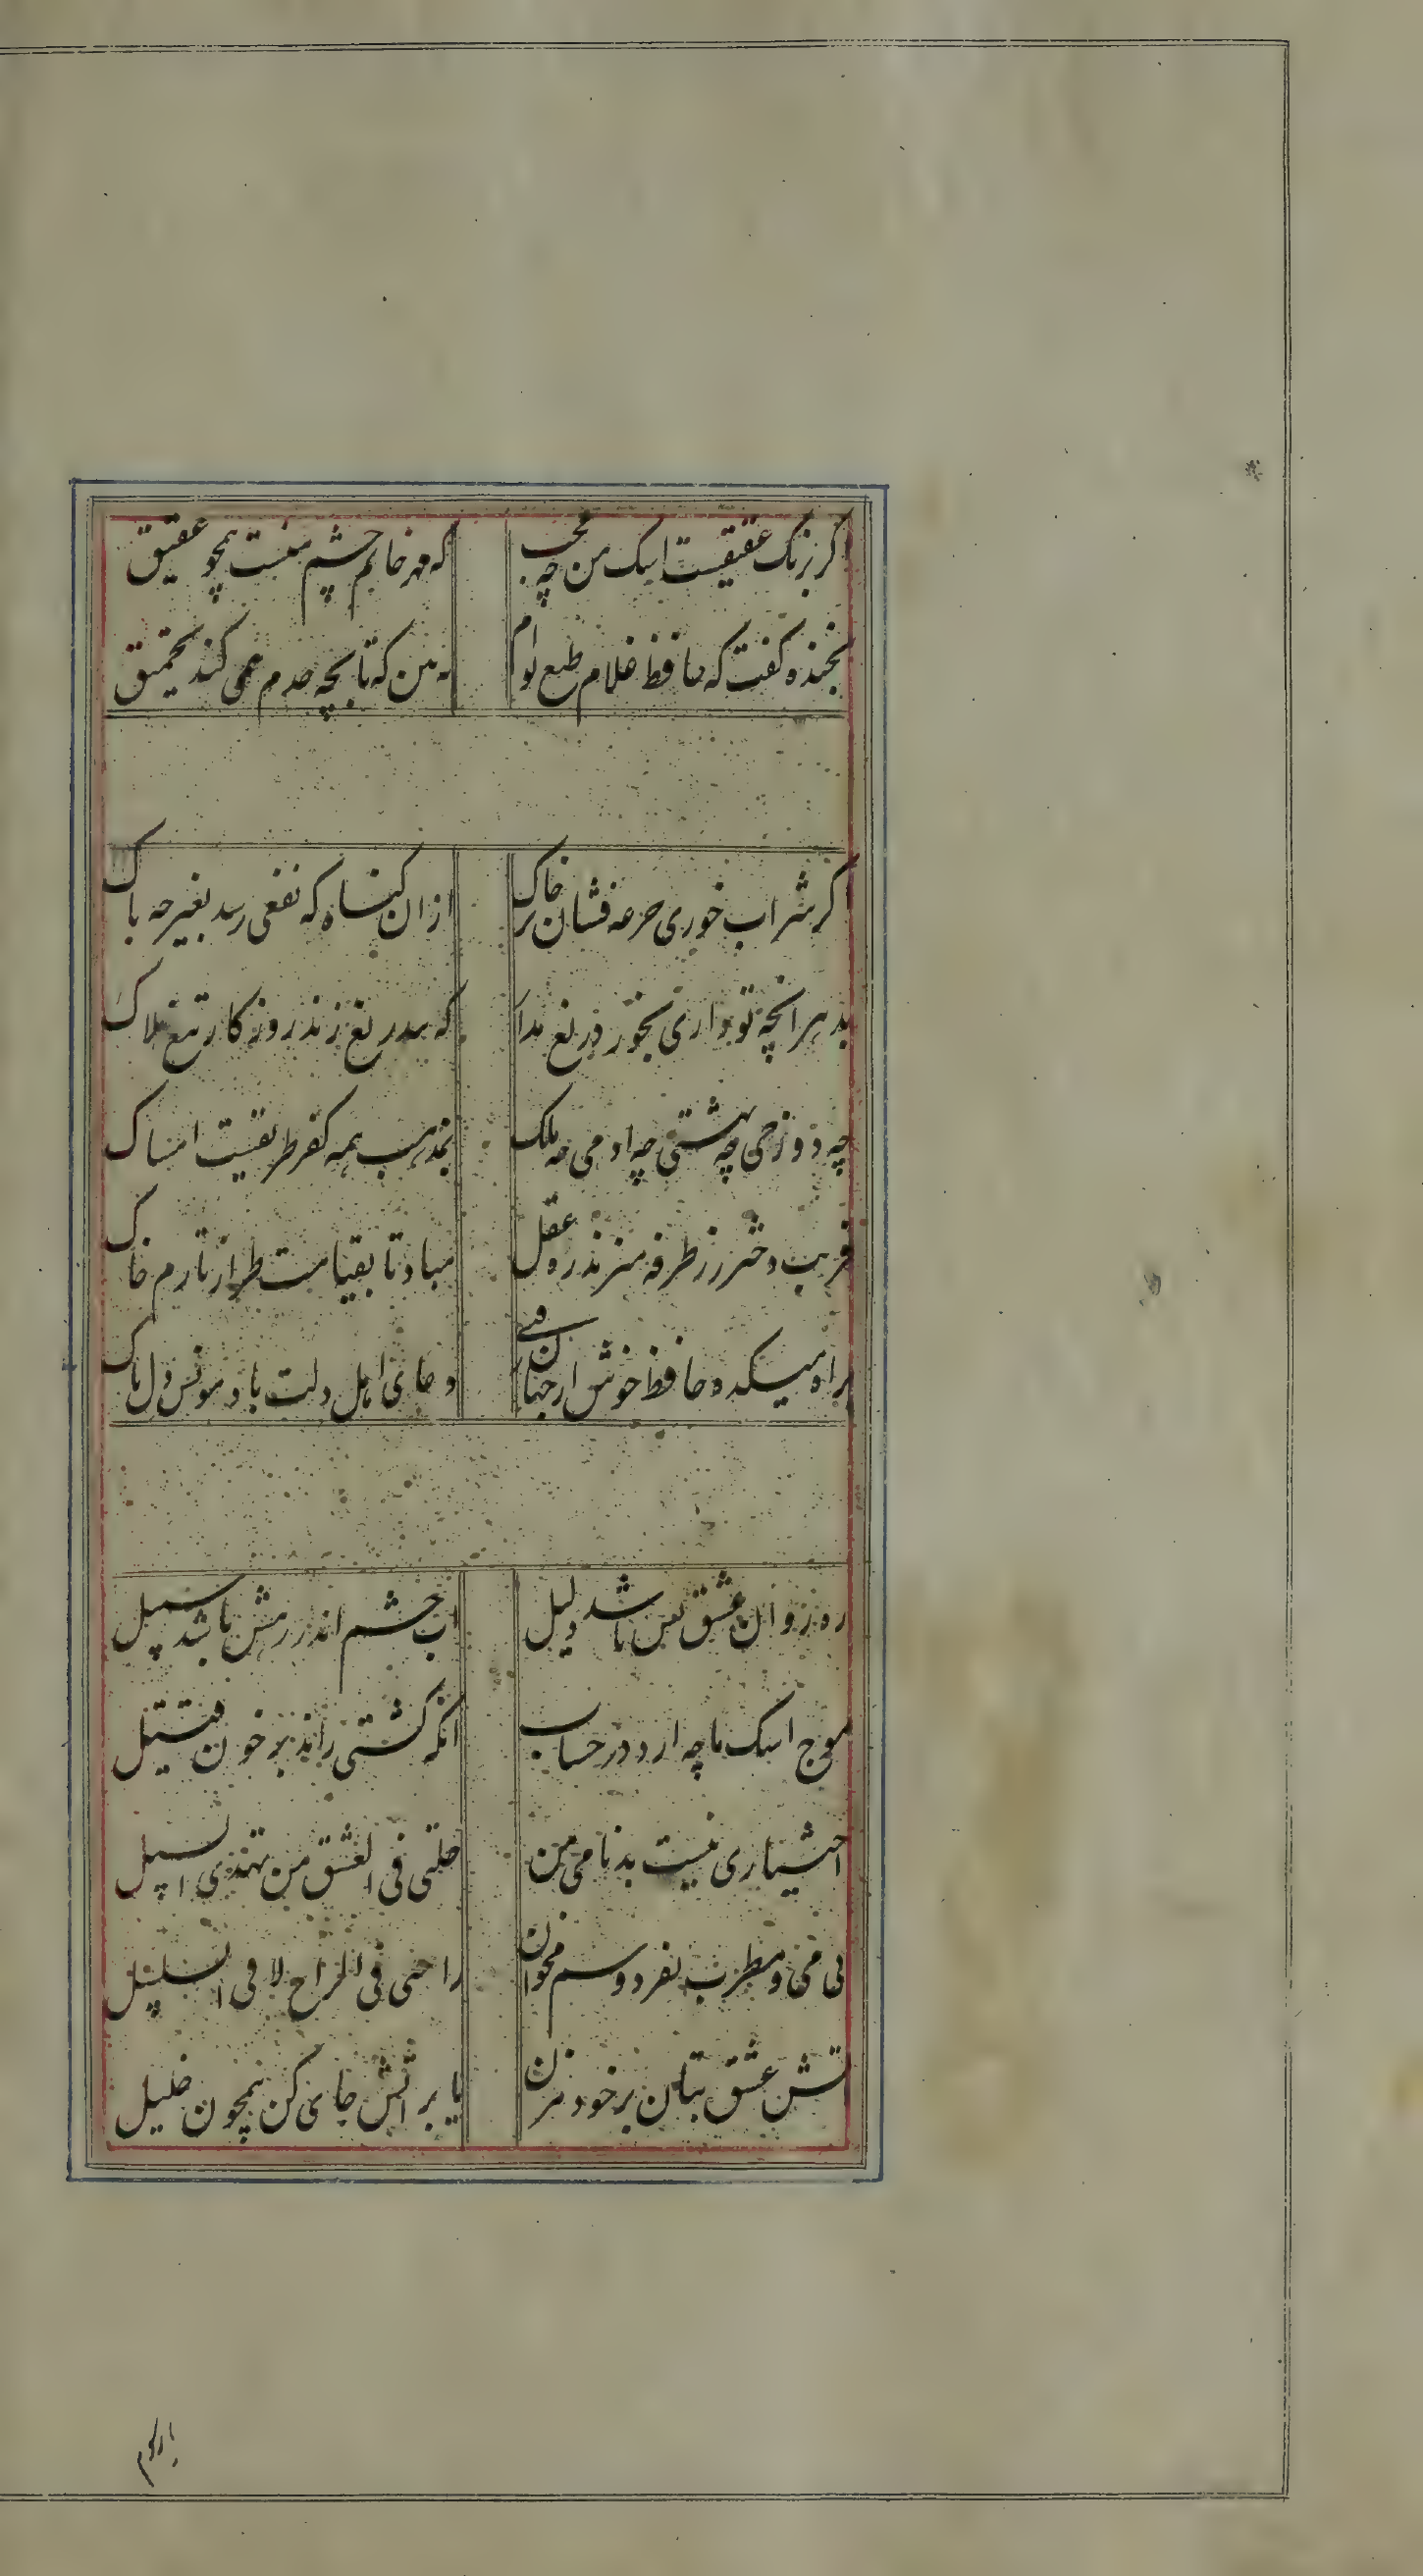 اگر برنک عقیقیست اشک من چه عجب که مهر خاتم چشم منست همچو عقیق
بخنده کفت که حافظ غلام طبع توام به من که تا بچه حدم همی کند تحمیق
اگر شراب خوری جرعه فشان بر خاک ازان کناه که نفعی رسد بغیر چه باک
بد هر انچه تو داری بخور دریغ مدار که بیدریغ زند روزکار تیغ هلاک
چه دوزخی چه بهشتی چه ادمی چه ملک بمذهب همه کفر طریقیست امساک
فریب دختر رز طرفه میزند ره عقل مباد تا بقیامت طراز تارم خاک
براه میکده حافظ خوش از جهان رفتی دعای اهل دلت باد مونس دل پاک
ره روان عشق بس باشد دلیل اب چشم اندر رهش باشد سبیل
موج اشک ما چه ارد در حساب انکه کشتی راند بر خون قتیل
اختیاری نیست بدنامی من ضلنی فی العشق من یهدی السبیل
بی می و مطرب بفردوسم مخوان راحتی فی الراح لا فی السلسبیل
اتش عشق بتان بر خود مزن یا بر اتش جای کن همچون خلیل